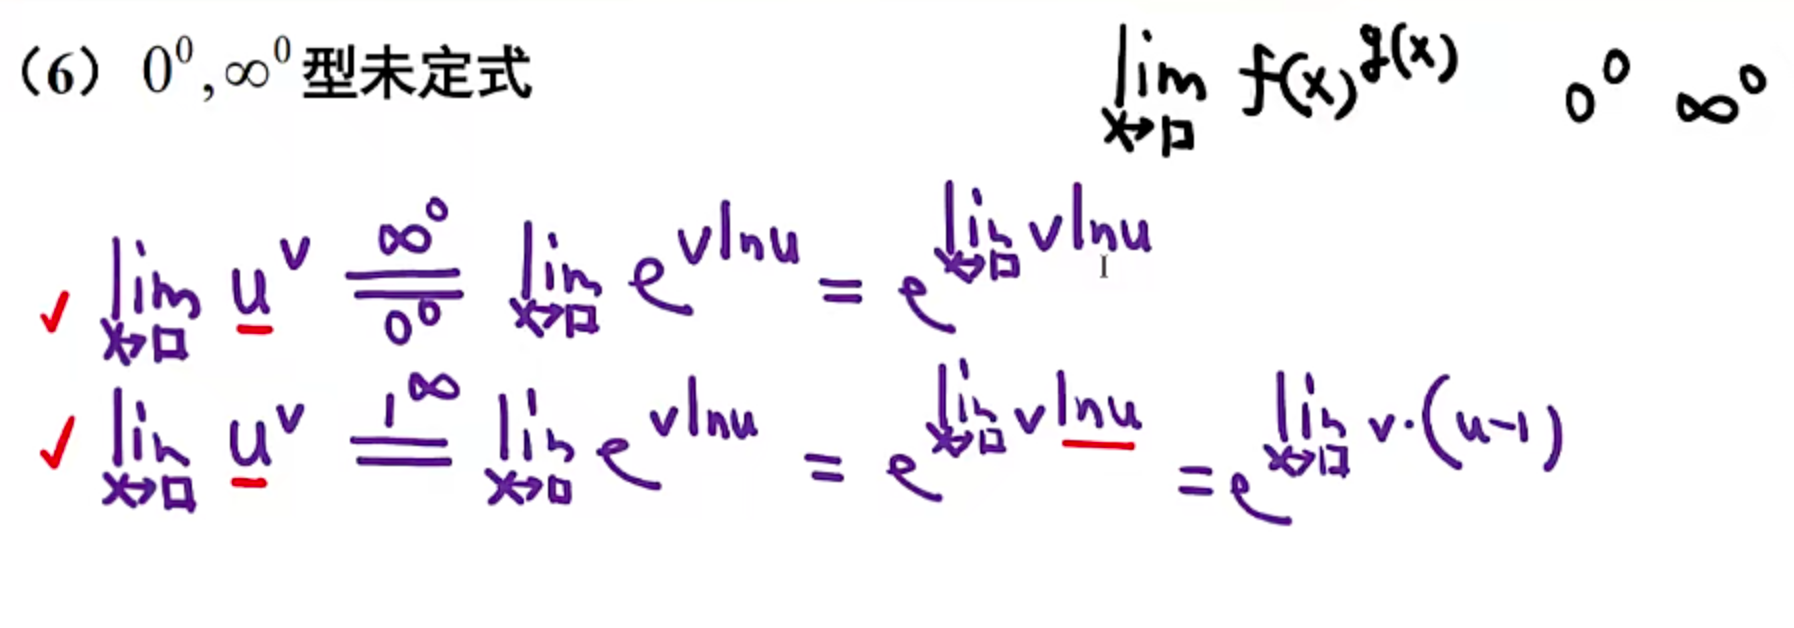 （6）0⁰,∞⁰型未定式 lim x→□ f(x)^g(x) 0⁰ ∞⁰
✓ lim x→□ u^v =(∞⁰ / 0⁰)= lim x→□ e^(vlnu) = e^(lim x→□ vlnu)
✓ lim x→□ u^v =(1^∞)= lim x→□ e^(vlnu) = e^(lim x→□ vlnu) = e^(lim x→□ v·(u-1))